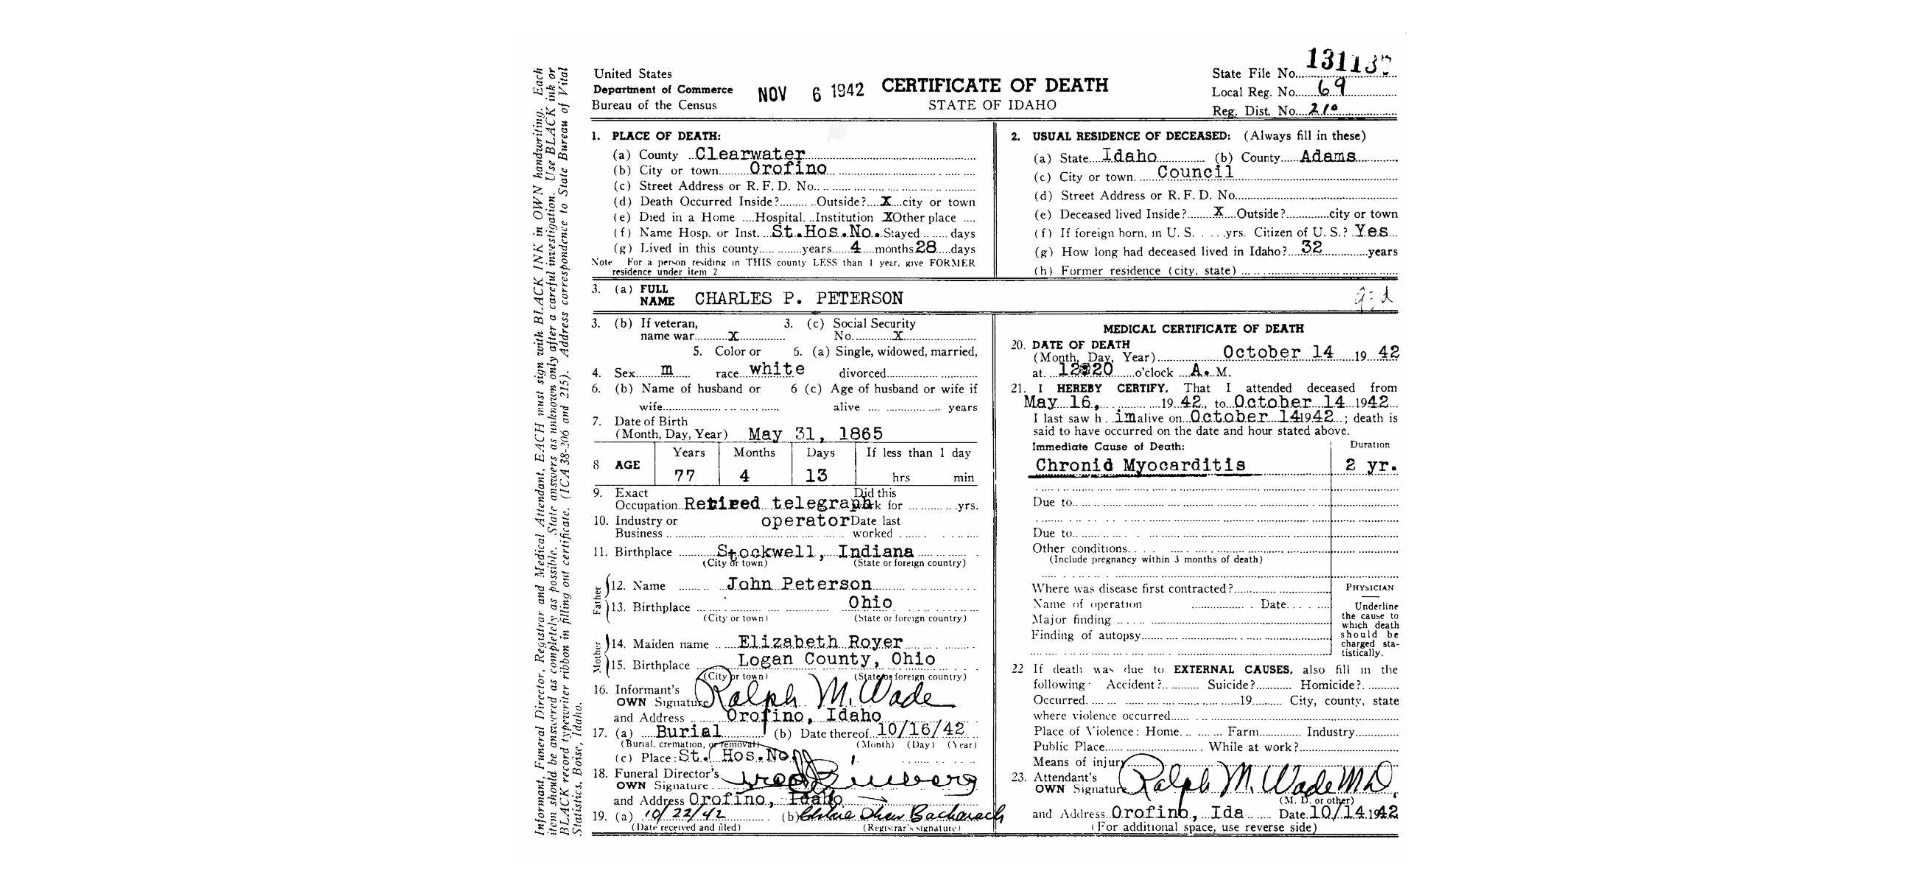 Informant, Funeral Director, Registrar and Medical Attendant, EACH must sign with BLACK INK in OWN handwriting. Each
item should be answered as completely as possible. State answers as unknown only after a careful investigation. Use BLACK ink or
BLACK record typewriter ribbon in filling out certificate. (ICA 38-206 and 215). Address correspondence to State Bureau of Vital
Statistics, Boise, Idaho.
United States
Department of Commerce
Bureau of the Census
NOV 6 1942
CERTIFICATE OF DEATH
STATE OF IDAHO
State File No.
Local Reg. No. 69
Reg. Dist. No. 210
1. PLACE OF DEATH:
(a) County Clearwater
(b) City or town Orofino
(c) Street Address or R. F. D. No.
(d) Death Occurred Inside? Outside? X city or town
(e) Died in a Home Hospital Institution X Other place
(f) Name Hosp. or Inst. St.Hos.No. Stayed days
(g) Lived in this county years 4 months 28 days
Note For a person residing in THIS county LESS than 1 year, give FORMER
residence under item 2
2. USUAL RESIDENCE OF DECEASED: (Always fill in these)
(a) State Idaho (b) County Adams
(c) City or town Council
(d) Street Address or R. F. D. No.
(e) Deceased lived Inside? X Outside? city or town
(f) If foreign born, in U. S. yrs. Citizen of U. S.? Yes
(g) How long had deceased lived in Idaho? 32 years
(h) Former residence (city, state)
3. (a) FULL
NAME CHARLES P. PETERSON
3. (b) If veteran,
name war X
3. (c) Social Security
No. X
5. Color or 6. (a) Single, widowed, married,
4. Sex m race white divorced
6. (b) Name of husband or 6 (c) Age of husband or wife if
wife alive years
7. Date of Birth
(Month, Day, Year) May 31, 1865
8 AGE
Years Months Days If less than 1 day
77 4 13 hrs min
9. Exact Did this
Occupation Retired telegraph work for yrs.
10. Industry or operator Date last
Business worked
11. Birthplace Stockwell, Indiana
(City or town) (State or foreign country)
Father
12. Name John Peterson
13. Birthplace Ohio
(City or town) (State or foreign country)
Mother
14. Maiden name Elizabeth Royer
15. Birthplace Logan County, Ohio
(City or town) (State or foreign country)
16. Informant's
OWN Signature Ralph M. Wade
and Address Orofino, Idaho
17. (a) Burial (b) Date thereof 10/16/42
(Burial, cremation, or removal) (Month) (Day) (Year)
(c) Place: St. Hos.No
18. Funeral Director's
OWN Signature
and Address Orofino, Idaho
19. (a) 10/22/42 (b) Bacharach
(Date received and filed) (Registrar's signature)
MEDICAL CERTIFICATE OF DEATH
20. DATE OF DEATH
(Month, Day, Year) October 14 19 42
at 12:20 o'clock A. M.
21. I HEREBY CERTIFY, That I attended deceased from
May 16, 19 42, to October 14 1942
I last saw h im alive on October 14 1942; death is
said to have occurred on the date and hour stated above.
Immediate Cause of Death: Duration
Chronid Myocarditis 2 yr.
Due to
Due to
Other conditions
(Include pregnancy within 3 months of death)
Where was disease first contracted?
Name of operation Date
Major finding
Finding of autopsy
PHYSICIAN
Underline
the cause to
which death
should be
charged sta-
tistically.
22 If death was due to EXTERNAL CAUSES, also fill in the
following: Accident? Suicide? Homicide?
Occurred 19 City, county, state
where violence occurred
Place of Violence: Home Farm Industry
Public Place While at work?
Means of injury
23. Attendant's
OWN Signature Ralph M. Wade M.D.
(M. D. or other)
and Address Orofino, Ida Date 10/14 1942
(For additional space, use reverse side)